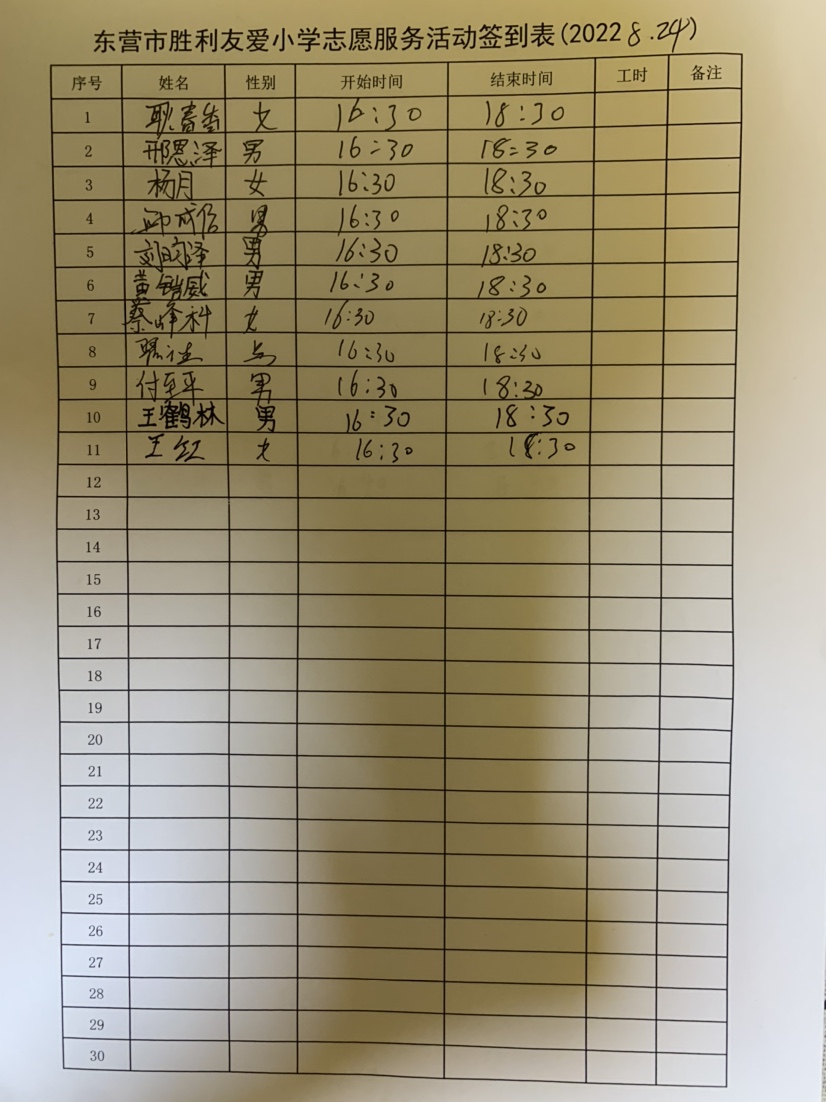 东营市胜利友爱小学志愿服务活动签到表(2022 8.24)
序号 姓名 性别 开始时间 结束时间 工时 备注
1 女 16:30 18:30
2 邢恩泽 男 16:30 18:30
3 杨月 女 16:30 18:30
4 邱成信 男 16:30 18:30
5 男 16:30 18:30
6 男 16:30 18:30
7 蔡峰科 女 16:30 18:30
8 16:30 18:30
9 付至平 男 16:30 18:30
10 王鹤林 男 16:30 18:30
11 王红 女 16:30 18:30
12
13
14
15
16
17
18
19
20
21
22
23
24
25
26
27
28
29
30